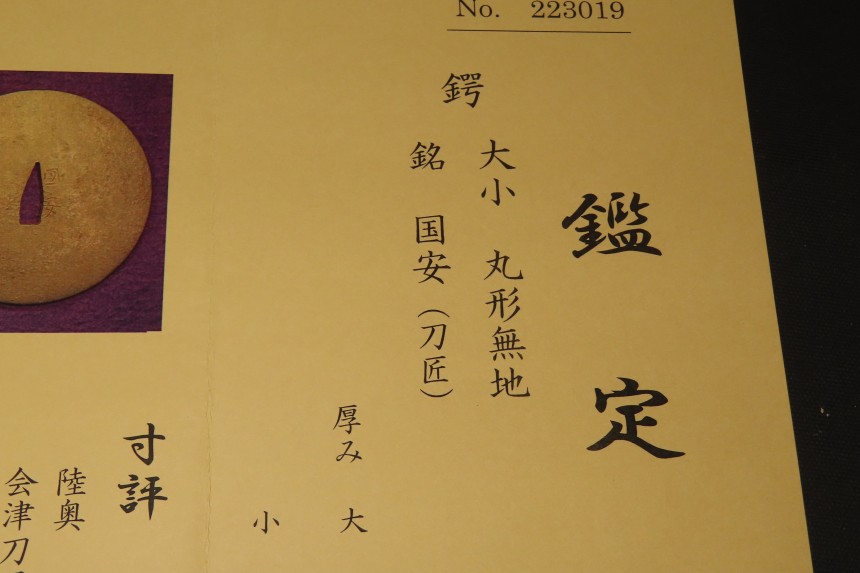 No. 223019
鑑定
鍔
大小 丸形無地
銘 国安（刀匠）
厚み 大
小
寸評
陸奥
会津刀